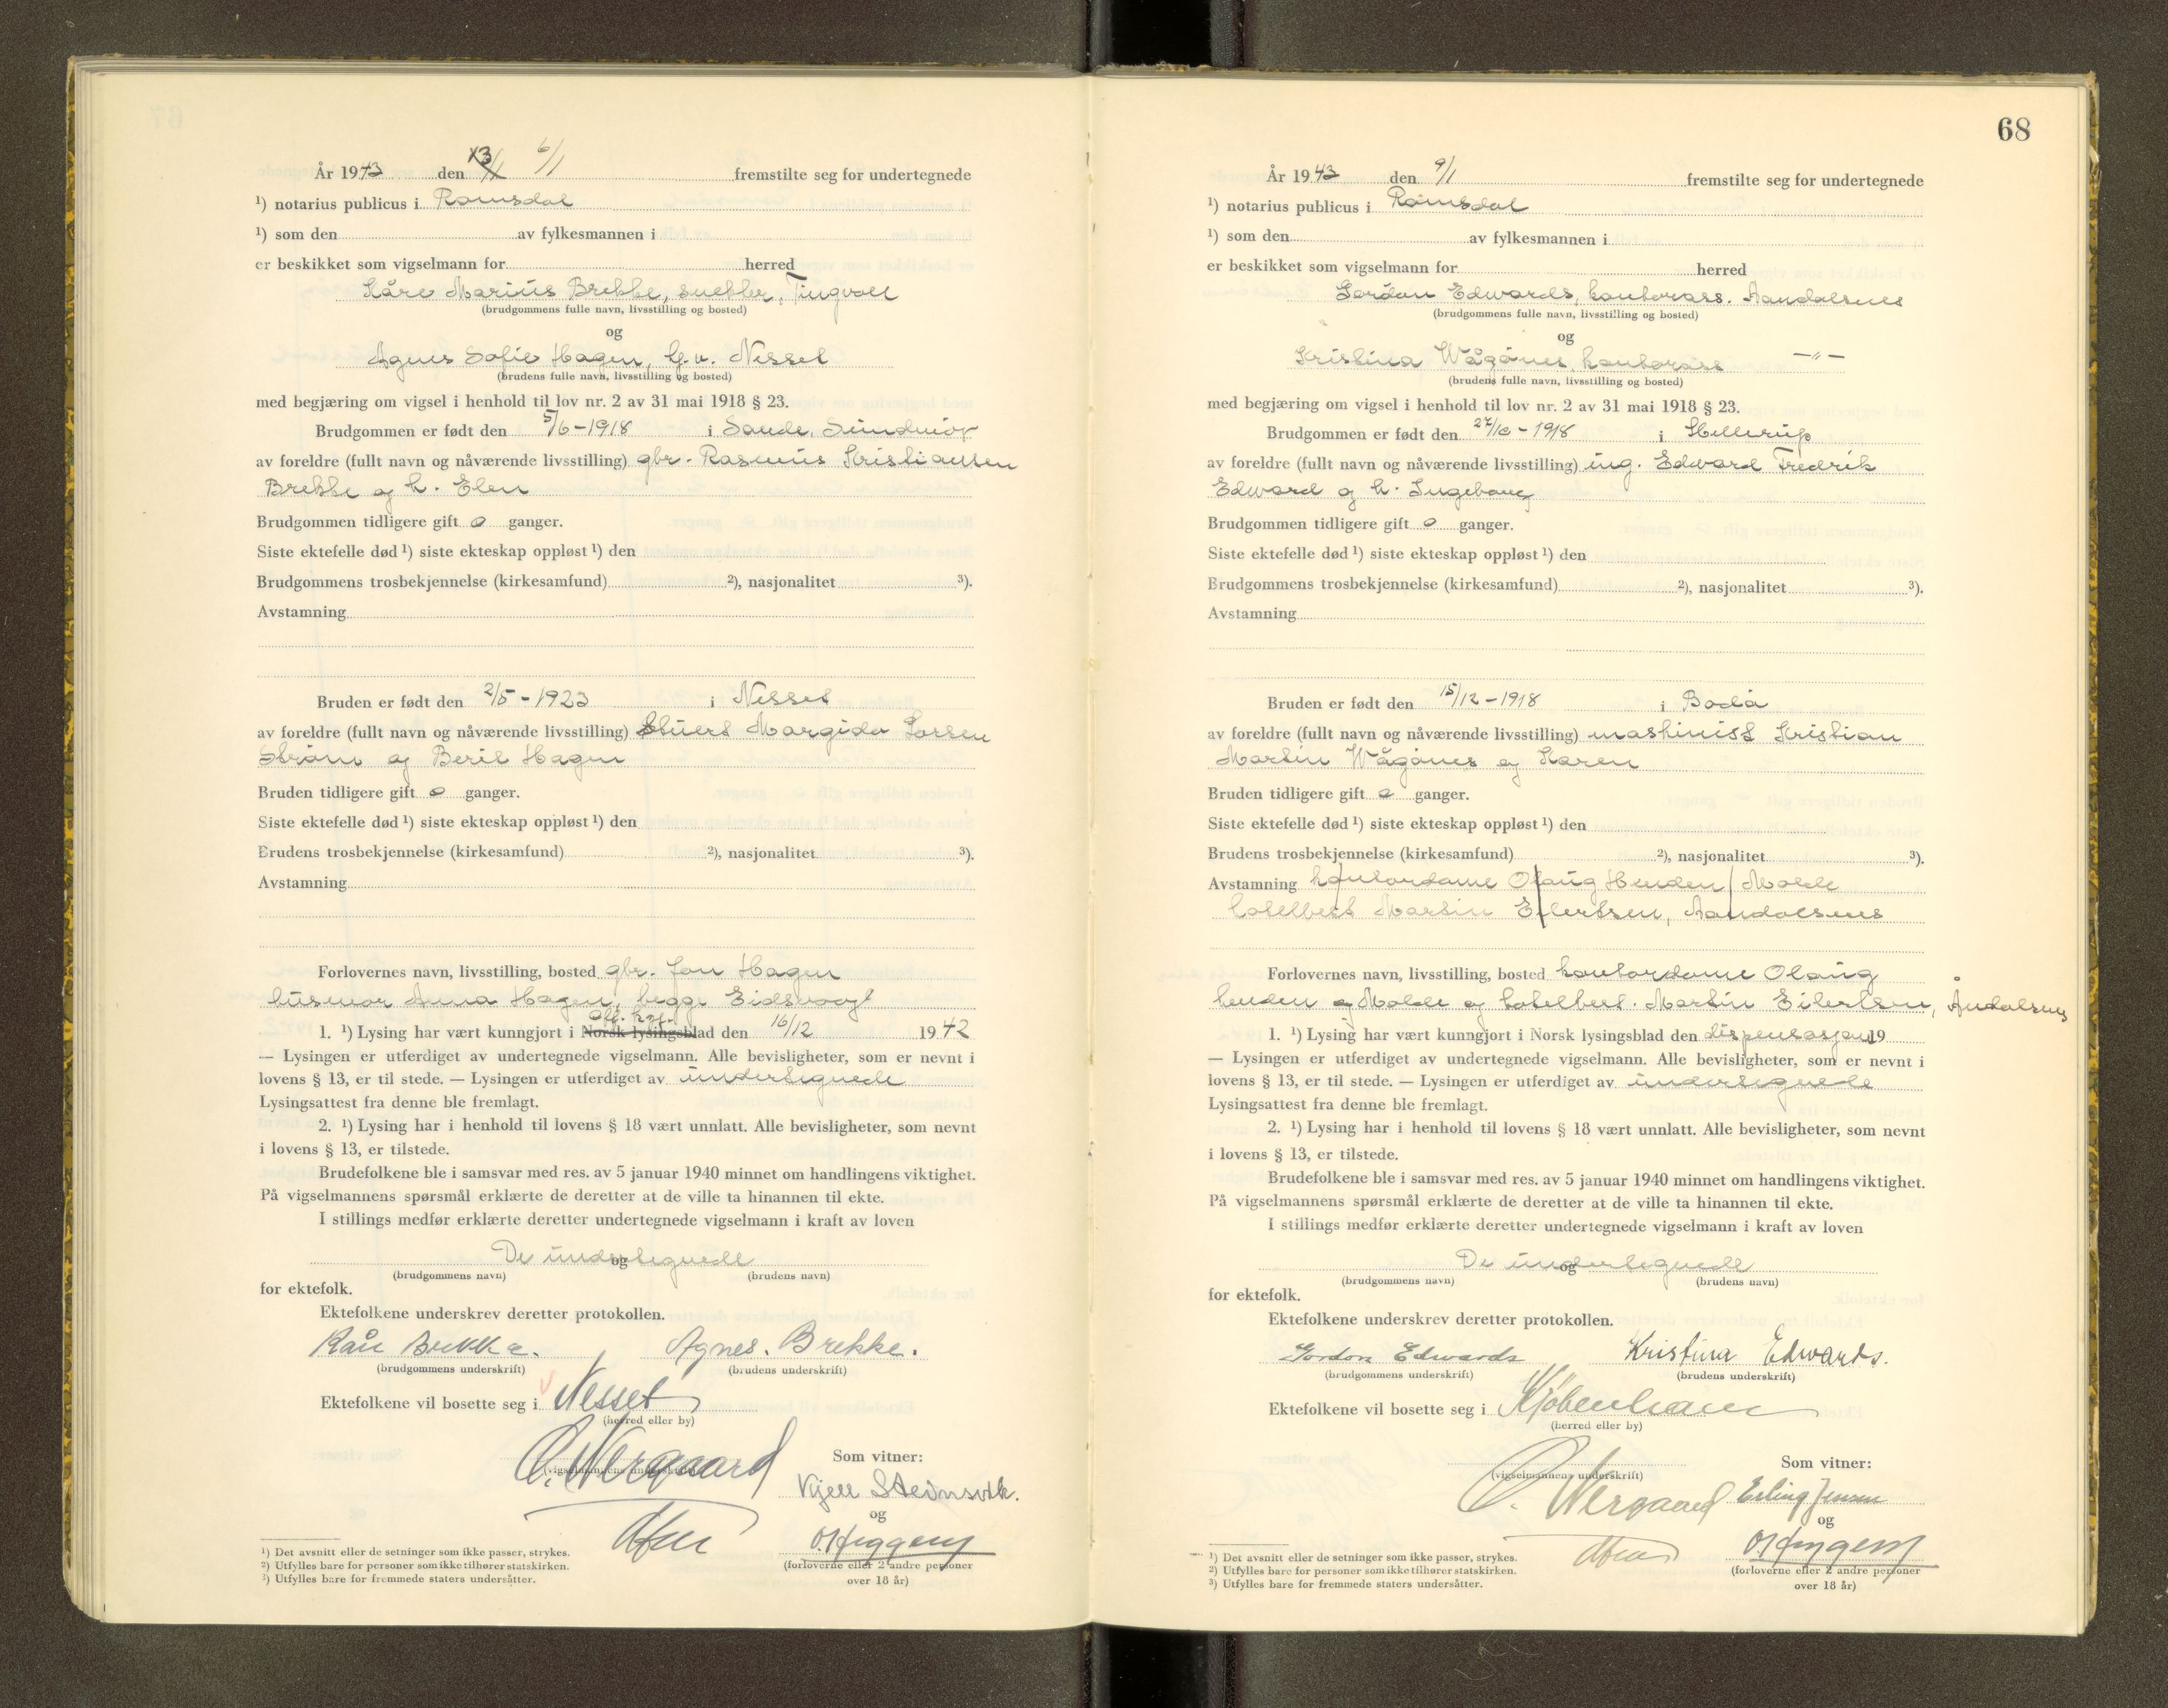 År 1943 den 6/1 fremstilte seg for undertegnede
¹) notarius publicus i Romsdal
¹) som den av fylkesmannen i
er beskikket som vigselmann for herred
Kåre Marius Brekke, snekker, Tingvoll
(brudgommens fulle navn, livsstilling og bosted)
og
Agnes Sofie Hagen, Nesset
(brudens fulle navn, livsstilling og bosted)
med begjæring om vigsel i henhold til lov nr. 2 av 31 mai 1918 § 23.
Brudgommen er født den 5/6-1918 i Sande, Sunnmør
av foreldre (fullt navn og nåværende livsstilling) gbr. Rasmus Kristiansen
Brekke og h. Elen
Brudgommen tidligere gift 0 ganger.
Siste ektefelle død ¹) siste ekteskap oppløst ¹) den
Brudgommens trosbekjennelse (kirkesamfund) ²), nasjonalitet ³).
Avstamning
Bruden er født den 2/5-1923 i Nesset
av foreldre (fullt navn og nåværende livsstilling) Larsen
Strøm og Berit Hagen
Bruden tidligere gift 0 ganger.
Siste ektefelle død ¹) siste ekteskap oppløst ¹) den
Brudens trosbekjennelse (kirkesamfund) ²), nasjonalitet ³).
Avstamning
Forlovernes navn, livsstilling, bosted gbr. Jon Hagen
husmor Anna Hagen, begge Eidsvaag
1. ¹) Lysing har vært kunngjort i Norsk lysingsblad den 16/12 1942
— Lysingen er utferdiget av undertegnede vigselmann. Alle bevisligheter, som er nevnt i
lovens § 13, er til stede. — Lysingen er utferdiget av undertegnede
Lysingsattest fra denne ble fremlagt.
2. ¹) Lysing har i henhold til lovens § 18 vært unnlatt. Alle bevisligheter, som nevnt
i lovens § 13, er tilstede.
Brudefolkene ble i samsvar med res. av 5 januar 1940 minnet om handlingens viktighet.
På vigselmannens spørsmål erklærte de deretter at de ville ta hinannen til ekte.
I stillings medfør erklærte deretter undertegnede vigselmann i kraft av loven
De undertegnede
og
(brudgommens navn) (brudens navn)
for ektefolk.
Ektefolkene underskrev deretter protokollen.
Kåre Brekke. Agnes. Brekke.
(brudgommens underskrift) (brudens underskrift)
Ektefolkene vil bosette seg i Nesset
(herred eller by)
O. Nergaard
(vigselmannens underskrift)
Som vitner:
Kjell Steinsvik.
og
(forloverne eller 2 andre personer
over 18 år)
¹) Det avsnitt eller de setninger som ikke passer, strykes.
²) Utfylles bare for personer som ikke tilhører statskirken.
³) Utfylles bare for fremmede staters undersåtter.
68
År 1943 den 9/1 fremstilte seg for undertegnede
¹) notarius publicus i Romsdal
¹) som den av fylkesmannen i
er beskikket som vigselmann for herred
Gordon Edwards, kontorass. Aandalsnes
(brudgommens fulle navn, livsstilling og bosted)
og
Kristina Wågønes, kontorass —"—
(brudens fulle navn, livsstilling og bosted)
med begjæring om vigsel i henhold til lov nr. 2 av 31 mai 1918 § 23.
Brudgommen er født den 27/10-1918 i Hellerup
av foreldre (fullt navn og nåværende livsstilling) ing. Edward Fredrik
Edward og h. Ingeborg
Brudgommen tidligere gift 0 ganger.
Siste ektefelle død ¹) siste ekteskap oppløst ¹) den
Brudgommens trosbekjennelse (kirkesamfund) ²), nasjonalitet ³).
Avstamning
Bruden er født den 15/12-1918 i Bodø
av foreldre (fullt navn og nåværende livsstilling) maskinist Kristian
Martin Wågønes og Karen
Bruden tidligere gift 0 ganger.
Siste ektefelle død ¹) siste ekteskap oppløst ¹) den
Brudens trosbekjennelse (kirkesamfund) ²), nasjonalitet ³).
Avstamning kontordame Olaug Henden Molde
hotelbest Martin Eilertsen, Aandalsnes
Forlovernes navn, livsstilling, bosted kontordame Olaug
henden Molde og hotelbest. Martin Eilertsen, Åndalsnes
1. ¹) Lysing har vært kunngjort i Norsk lysingsblad den dispensasjon 19
— Lysingen er utferdiget av undertegnede vigselmann. Alle bevisligheter, som er nevnt i
lovens § 13, er til stede. — Lysingen er utferdiget av undertegnede
Lysingsattest fra denne ble fremlagt.
2. ¹) Lysing har i henhold til lovens § 18 vært unnlatt. Alle bevisligheter, som nevnt
i lovens § 13, er tilstede.
Brudefolkene ble i samsvar med res. av 5 januar 1940 minnet om handlingens viktighet.
På vigselmannens spørsmål erklærte de deretter at de ville ta hinannen til ekte.
I stillings medfør erklærte deretter undertegnede vigselmann i kraft av loven
De undertegnede
og
(brudgommens navn) (brudens navn)
for ektefolk.
Ektefolkene underskrev deretter protokollen.
Gordon Edwards Kristina Edwards.
(brudgommens underskrift) (brudens underskrift)
Ektefolkene vil bosette seg i Kjøbenhavn
(herred eller by)
(vigselmannens underskrift)
O. Nergaard
Som vitner:
Erling Jensen
og
(forloverne eller 2 andre personer
over 18 år)
¹) Det avsnitt eller de setninger som ikke passer, strykes.
²) Utfylles bare for personer som ikke tilhører statskirken.
³) Utfylles bare for fremmede staters undersåtter.